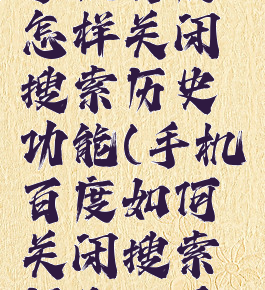 怎样关闭
搜索历史
功能(手机
百度如何
关闭搜索